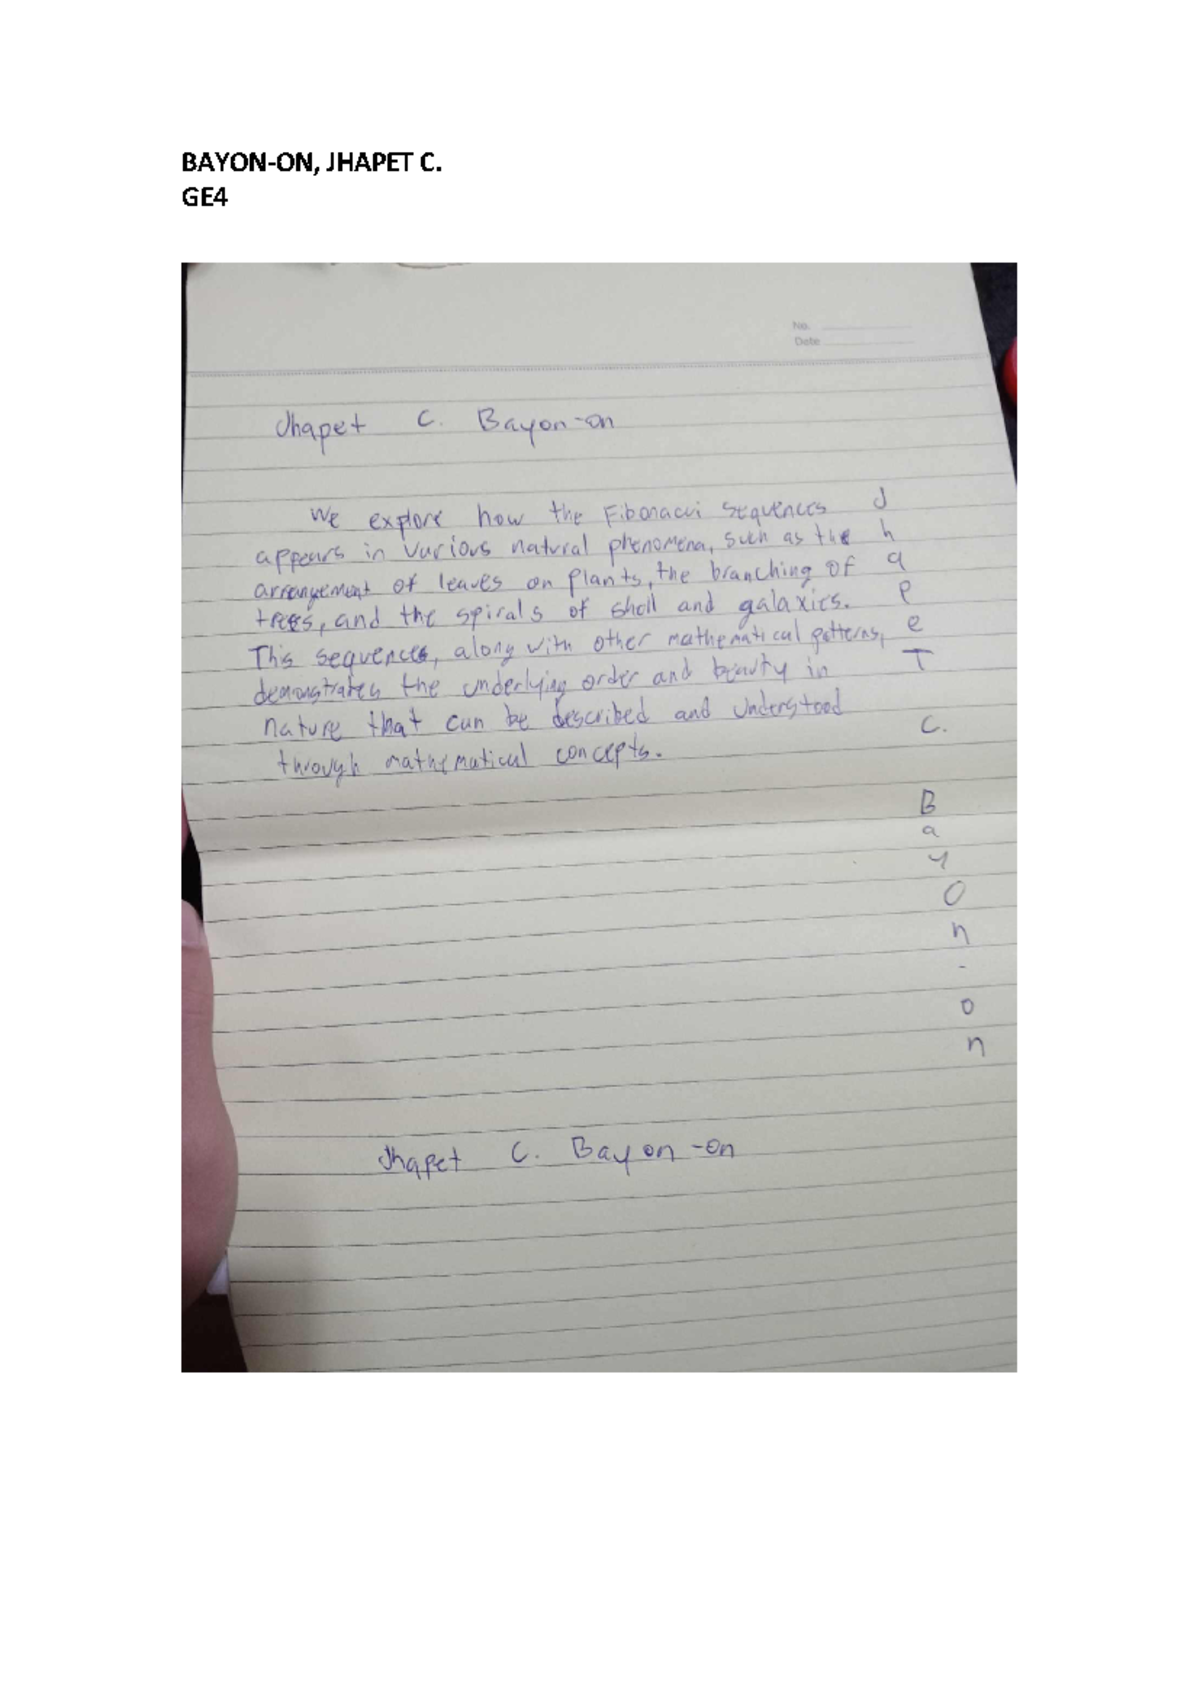 BAYON-ON, JHAPET C.
GE4
No.
Date
Jhapet C. Bayon-on
We explore how the Fibonacci Sequences
appears in various natural phenomena, such as the
arrangement of leaves on plants, the branching of
trees, and the spirals of shell and galaxies.
This sequences, along with other mathematical patterns,
demonstrates the underlying order and beauty in
nature that can be described and understood
through mathematical concepts.
J
h
a
p
e
T
C.
B
a
y
O
n
-
o
n
Jhapet C. Bayon-on